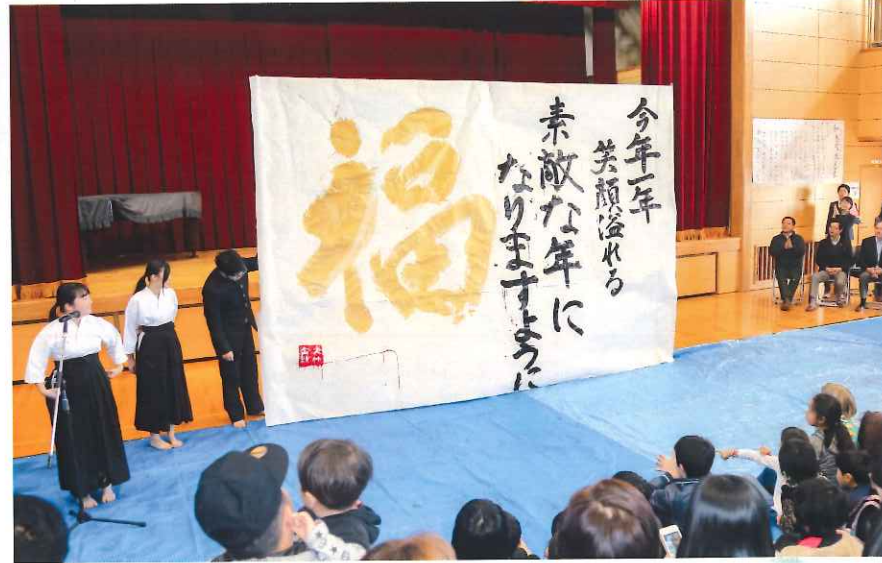 今年一年
笑顔溢れる
素敵な年に
なりますように
福